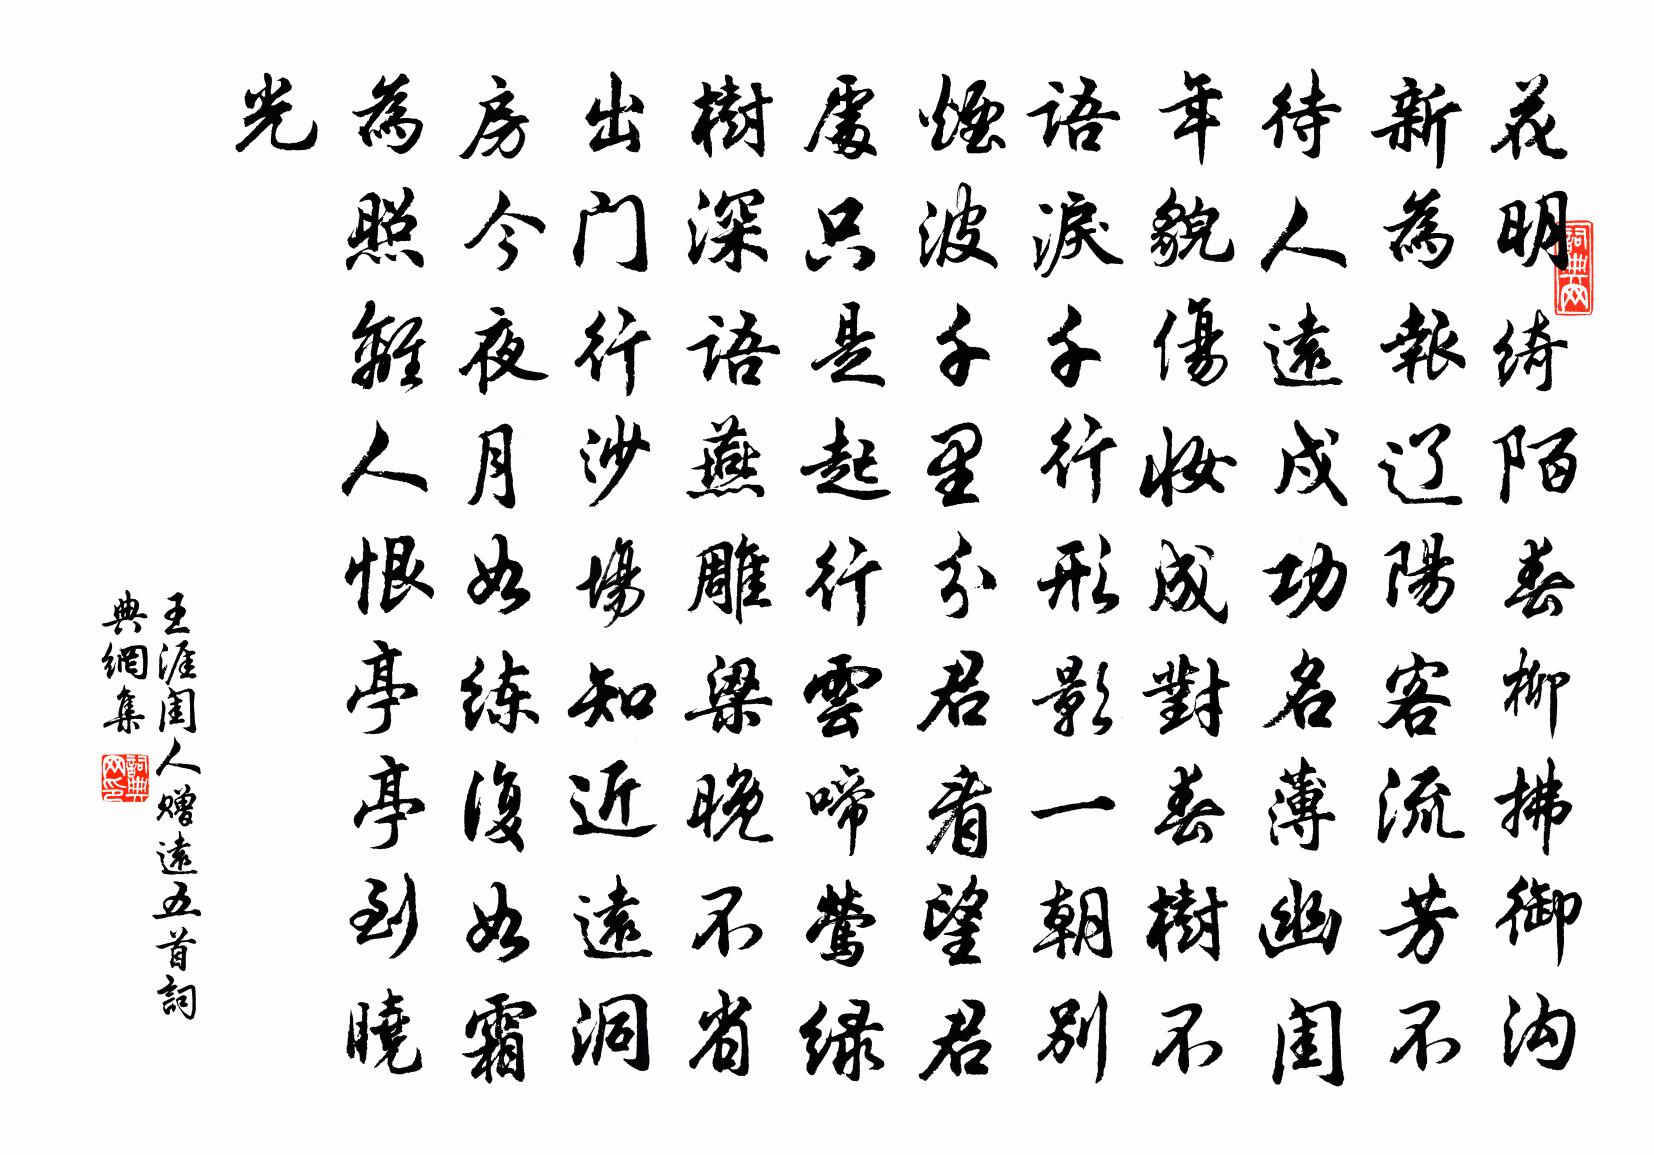 花明綺陌春柳拂御沟
新為報辽陽客流芳不
待人遠戍功名薄幽闺
年貌傷妆成對春樹不
語淚千行形影一朝别
煙波千里分君看望君
處只是起行雲啼莺绿
樹深語燕雕梁晚不省
出门行沙場知近遠洞
房今夜月如练復如霜
為照離人恨亭亭到曉
光
王涯闺人赠遠五首詞
典網集
詞典网
詞典网印